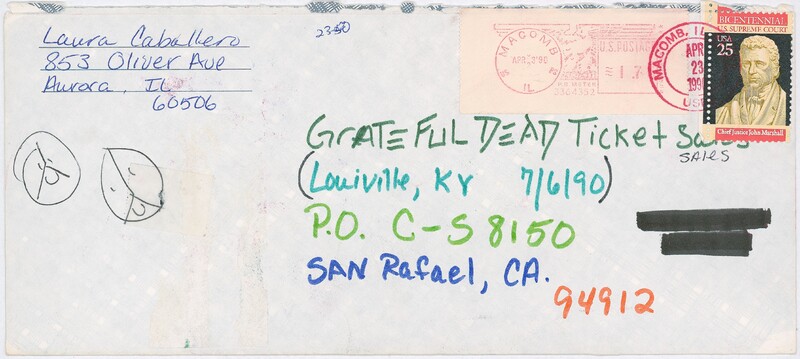 Laura Caballero
853 Oliver Ave
Aurora, IL
60506
2350
MACOMB
APR 23 '90
IL
U.S. POSTAGE
MACOMB, IL
APR
23
1990
BICENTENNIAL
U.S. SUPREME COURT
USA
25
Chief Justice John Marshall
GRATEFUL DEAD Ticket Sales
SALES
(Louiville, KY 7/6/90)
P.O. C-S 8150
SAN Rafael, CA.
94912